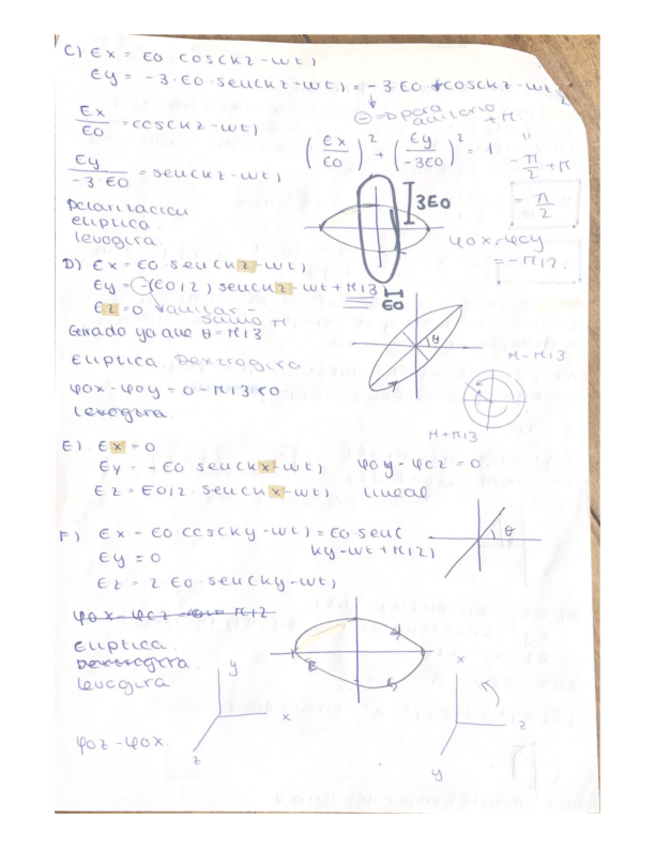 C) Ex = E0·cos(kz-wt)
Ey = -3·E0·seu(kz-wt) = -3·E0·cos(kz-wt
⊖ => para
auularlo
+π
Ex/E0 = cos(kz-wt)
(Ex/E0)² + (Ey/-3E0)² = 1
-π/2 + π
= π/2
Ey/-3·E0 = seu(kz-wt)
3E0
Polarización
elíptica.
levogira.
φ0x-φ0y
= -π/2.
E0
D) Ex = E0·seu(kz-wt)
Ey = -(E0/2) seu(kz-wt+π/3
Ez = 0
auular -
sumo π.
Girado ya que θ = π/3
θ
π-π/3
Elíptica. Dextrogira.
φ0x-φ0y = 0-π/3<0
levogira.
π+π/3
E). Ex = 0
Ey = -E0·seu(kx-wt)
φ0y-φ0z = 0
Ez = E0/2·seu(kx-wt)
lineal
θ
F). Ex = E0·cos(ky-wt) = E0·seu(
ky-wt+π/2)
Ey = 0
Ez = 2·E0·seu(ky-wt)
φ0x-φ0z = π/2
Elíptica.
Dextrogira.
levogira
y
x
z
x
z
y
φ0z-φ0x.